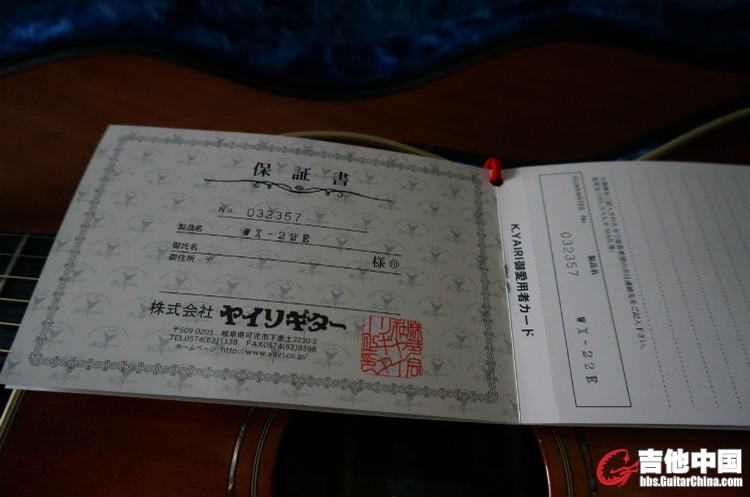 保証書
No. 032357
製品名 WX-22E
御氏名
御住所 〒 様 印
株式会社 ヤイリギター
〒509-0203 岐阜県可児市下恵土3230-2
ホームページ http://www.yairi.co.jp/
K.YAIRI御愛用者カード
GUARANTEE No. 製品名
032357 WX-22E
吉他中国
bbs.GuitarChina.com